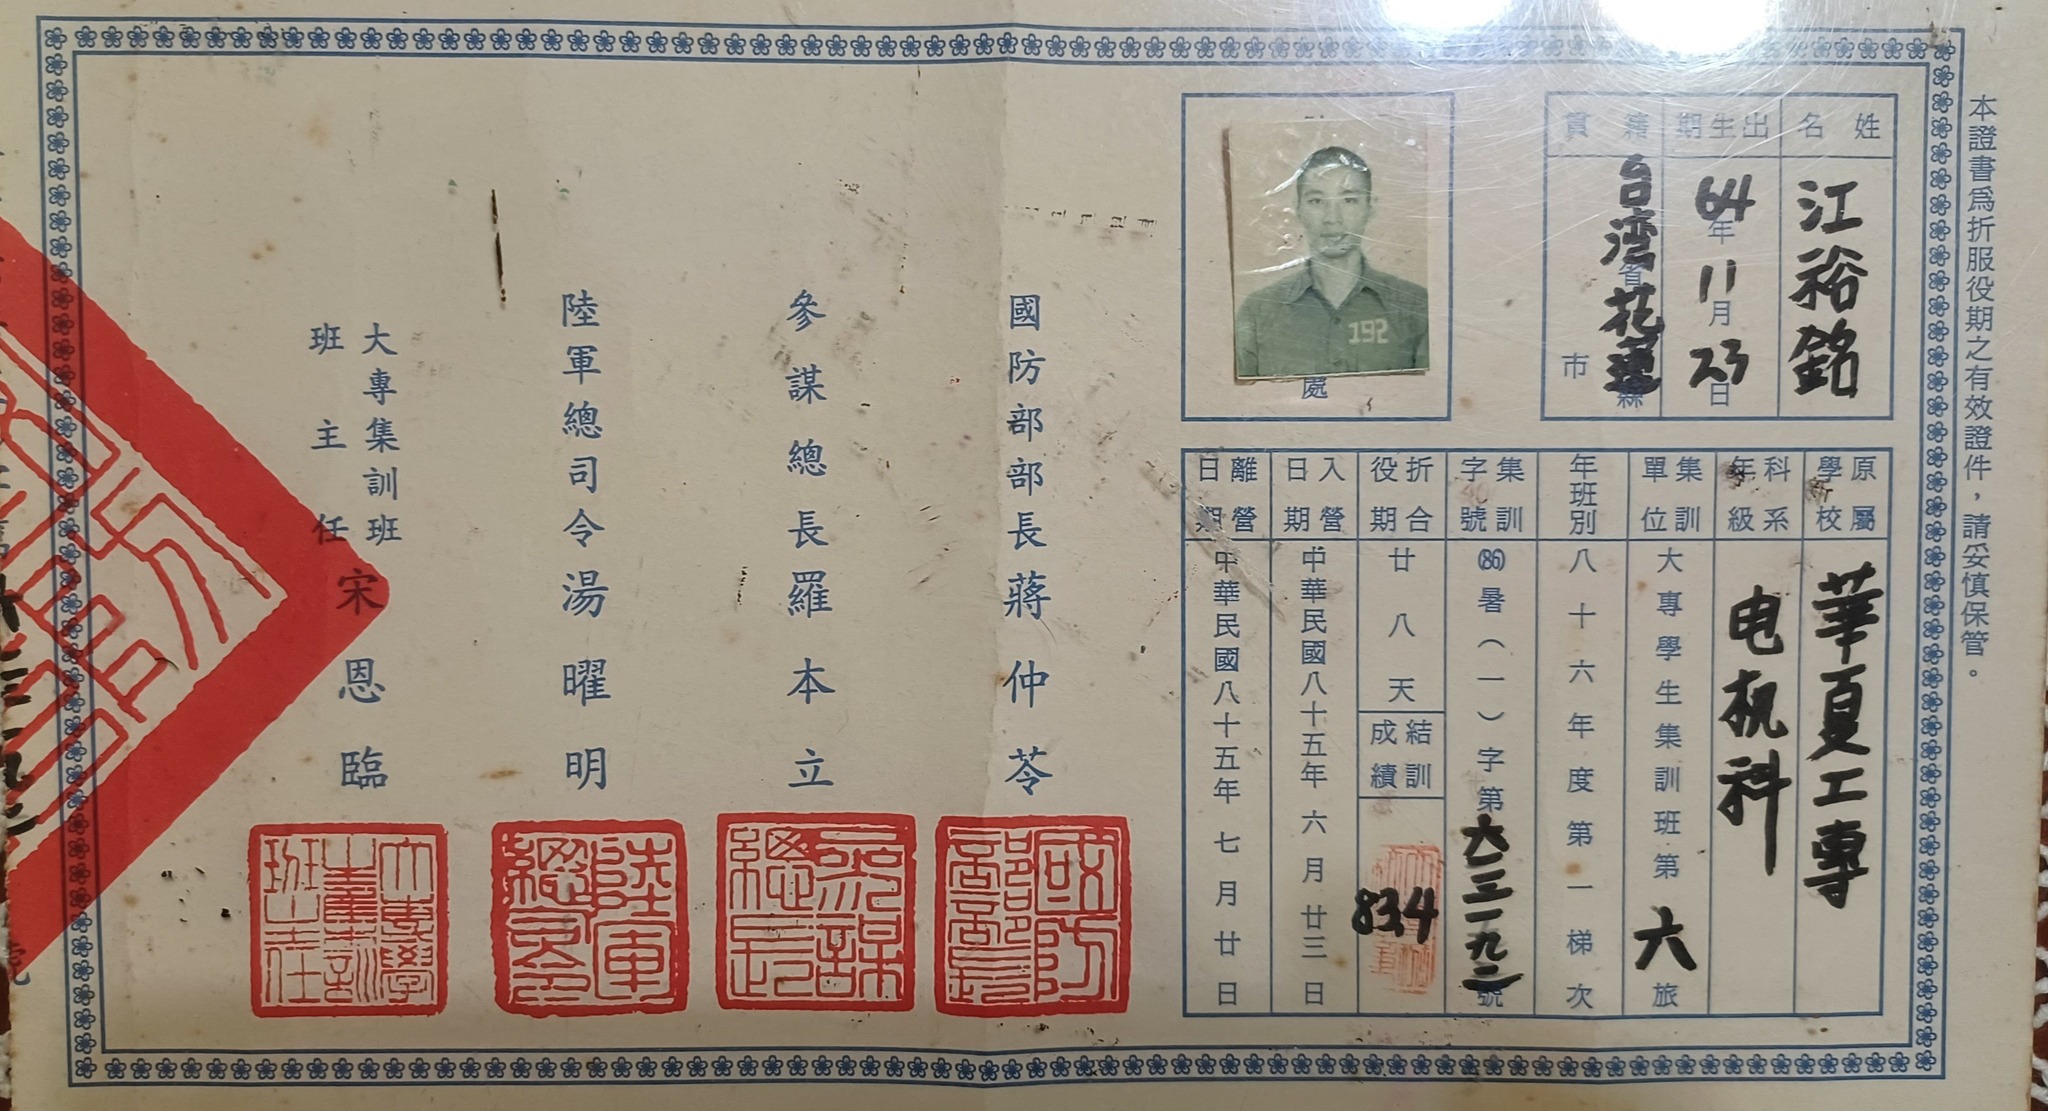 本證書爲折服役期之有效證件，請妥慎保管。
姓名
江裕銘
出生期
64年11月23日
籍貫
台湾省花蓮縣
市
處
192
原屬學校
華夏工專
科系年級
电机科
集訓單位
大專學生集訓班第六旅
年班別
八十六年度第一梯次
集訓字號
(86)暑(一)字第六三一九二號
折合役期
廿八天
結訓成績
834
入營日期
中華民國八十五年六月廿三日
離營日期
中華民國八十五年七月廿日
國防部部長蔣仲苓
國防部部長
參謀總長羅本立
參謀總長
陸軍總司令湯曜明
陸軍總司令
大專集訓班
班主任宋恩臨
大專學生集訓班主任